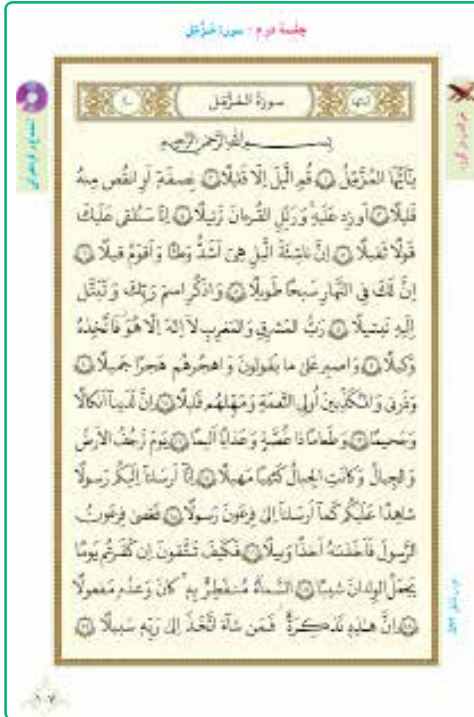 جلسهٔ دوم : سورهٔ مُزَّمِّل
سورَةُ المُزَّمِّل
بِسمِ اللهِ الرَّحمٰنِ الرَّحیمِ
یٰۤاَیُّهَا المُزَّمِّلُ ﴿١﴾ قُمِ الَّیلَ اِلّا قَلیلًا ﴿٢﴾ نِصفَهٗۤ اَوِ انقُص مِنهُ
قَلیلًا ﴿٣﴾ اَو زِد عَلَیهِ وَ رَتِّلِ القُرءانَ تَرتیلًا ﴿٤﴾ اِنّا سَنُلقی عَلَیكَ
قَولًا ثَقیلًا ﴿٥﴾ اِنَّ ناشِئَةَ الَّیلِ هِیَ اَشَدُّ وَطئًا وَ اَقوَمُ قیلًا ﴿٦﴾
اِنَّ لَكَ فِی النَّهارِ سَبحًا طَویلًا ﴿٧﴾ وَ اذكُرِ اسمَ رَبِّكَ وَ تَبَتَّل
اِلَیهِ تَبتیلًا ﴿٨﴾ رَبُّ المَشرِقِ وَ المَغرِبِ لاۤ اِلٰهَ اِلّا هُوَ فَاتَّخِذهُ
وَكیلًا ﴿٩﴾ وَ اصبِر عَلیٰ ما یَقولونَ وَ اهجُرهُم هَجرًا جَمیلًا ﴿١٠﴾
وَ ذَرنی وَ المُكَذِّبینَ اُولِی النَّعمَةِ وَ مَهِّلهُم قَلیلًا ﴿١١﴾ اِنَّ لَدَیناۤ اَنكالًا
وَ جَحیمًا ﴿١٢﴾ وَ طَعامًا ذا غُصَّةٍ وَ عَذابًا اَلیمًا ﴿١٣﴾ یَومَ تَرجُفُ الاَرضُ
وَ الجِبالُ وَ كانَتِ الجِبالُ كَثیبًا مَهیلًا ﴿١٤﴾ اِنّاۤ اَرسَلناۤ اِلَیكُم رَسولًا
شاهِدًا عَلَیكُم كَماۤ اَرسَلناۤ اِلیٰ فِرعَونَ رَسولًا ﴿١٥﴾ فَعَصیٰ فِرعَونُ
الرَّسولَ فَاَخَذنٰهُ اَخذًا وَبیلًا ﴿١٦﴾ فَكَیفَ تَتَّقونَ اِن كَفَرتُم یَومًا
یَجعَلُ الوِلدانَ شیبًا ﴿١٧﴾ السَّماۤءُ مُنفَطِرٌ بِهٖ كانَ وَعدُهٗ مَفعولًا
﴿١٨﴾ اِنَّ هٰذِهٖ تَذكِرَةٌ فَمَن شاۤءَ اتَّخَذَ اِلیٰ رَبِّهٖ سَبیلًا ﴿١٩﴾
١٠٧